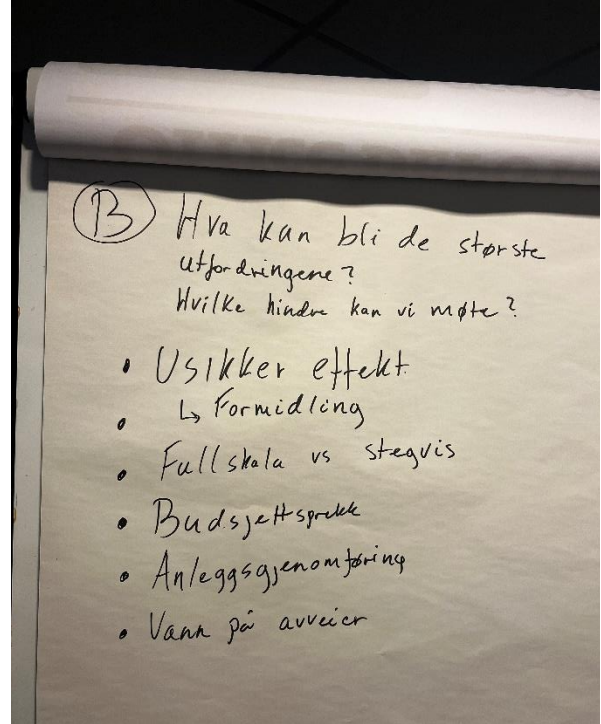 B Hva kan bli de største
utfordringene?
Hvilke hindre kan vi møte?
• Usikker effekt.
• ↳ Formidling
• Fullskala vs stegvis
• Budsjettsprekk
• Anleggsgjenomføring
• Vann på avveier